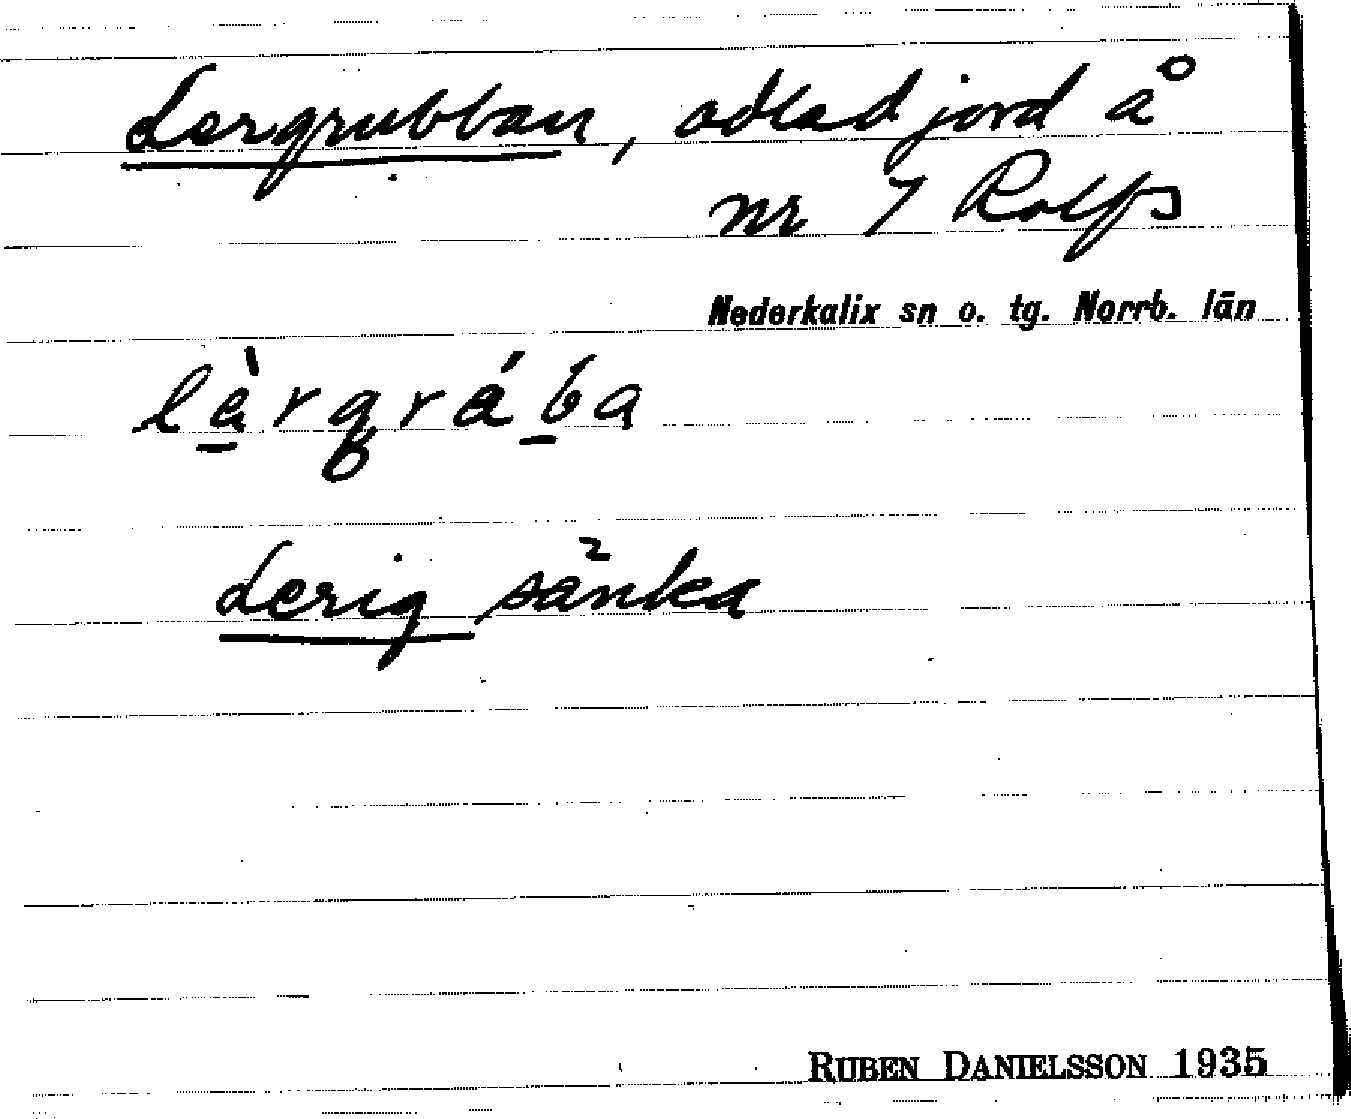 Lergrubban, odlad jord å
nr 7 Rolfs
Nederkalix sn o. tg. Norrb. län
lèrgrába
Lerig sänka
RUBEN DANIELSSON 1935